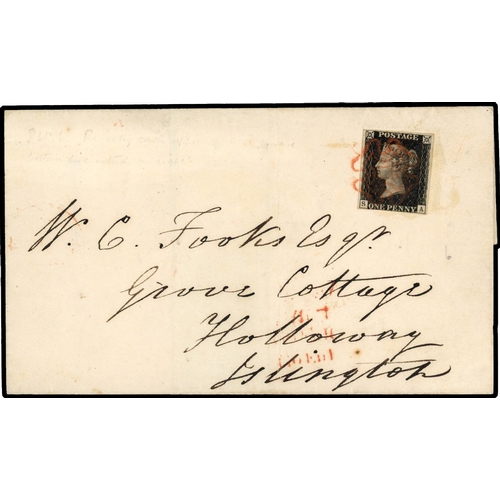 POSTAGE
S A
ONE PENNY
W. C. Fooks Esqr.
Grove Cottage
Holloway
Islington